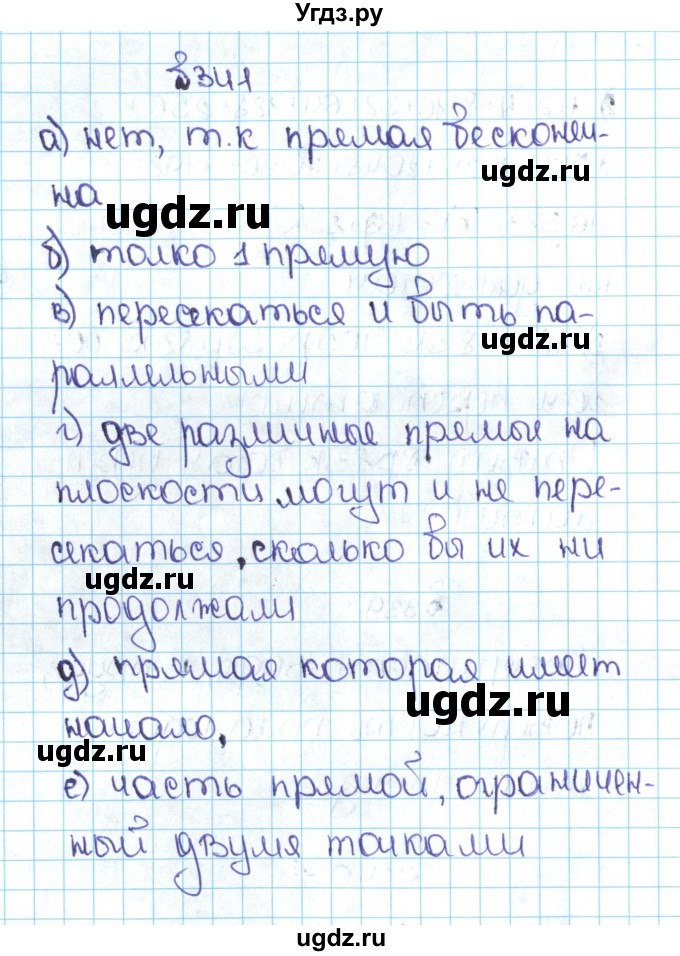 Угдз.ру
№341
а) нет, т.к прямая бесконеч-
ugdz.ru
на
ugdz.ru
б) толко 1 прямую
в) пересекаться и быть па-
ugdz.ru
раллельными
г) две различные прямые на
плоскости могут и не пере-
секаться, сколько бы их ни
ugdz.ru
продолжали
д) прямая которая имеет
ugdz.ru
начало,
ugdz.ru
е) часть прямой, ограничен-
ный двумя точками
ugdz.ru